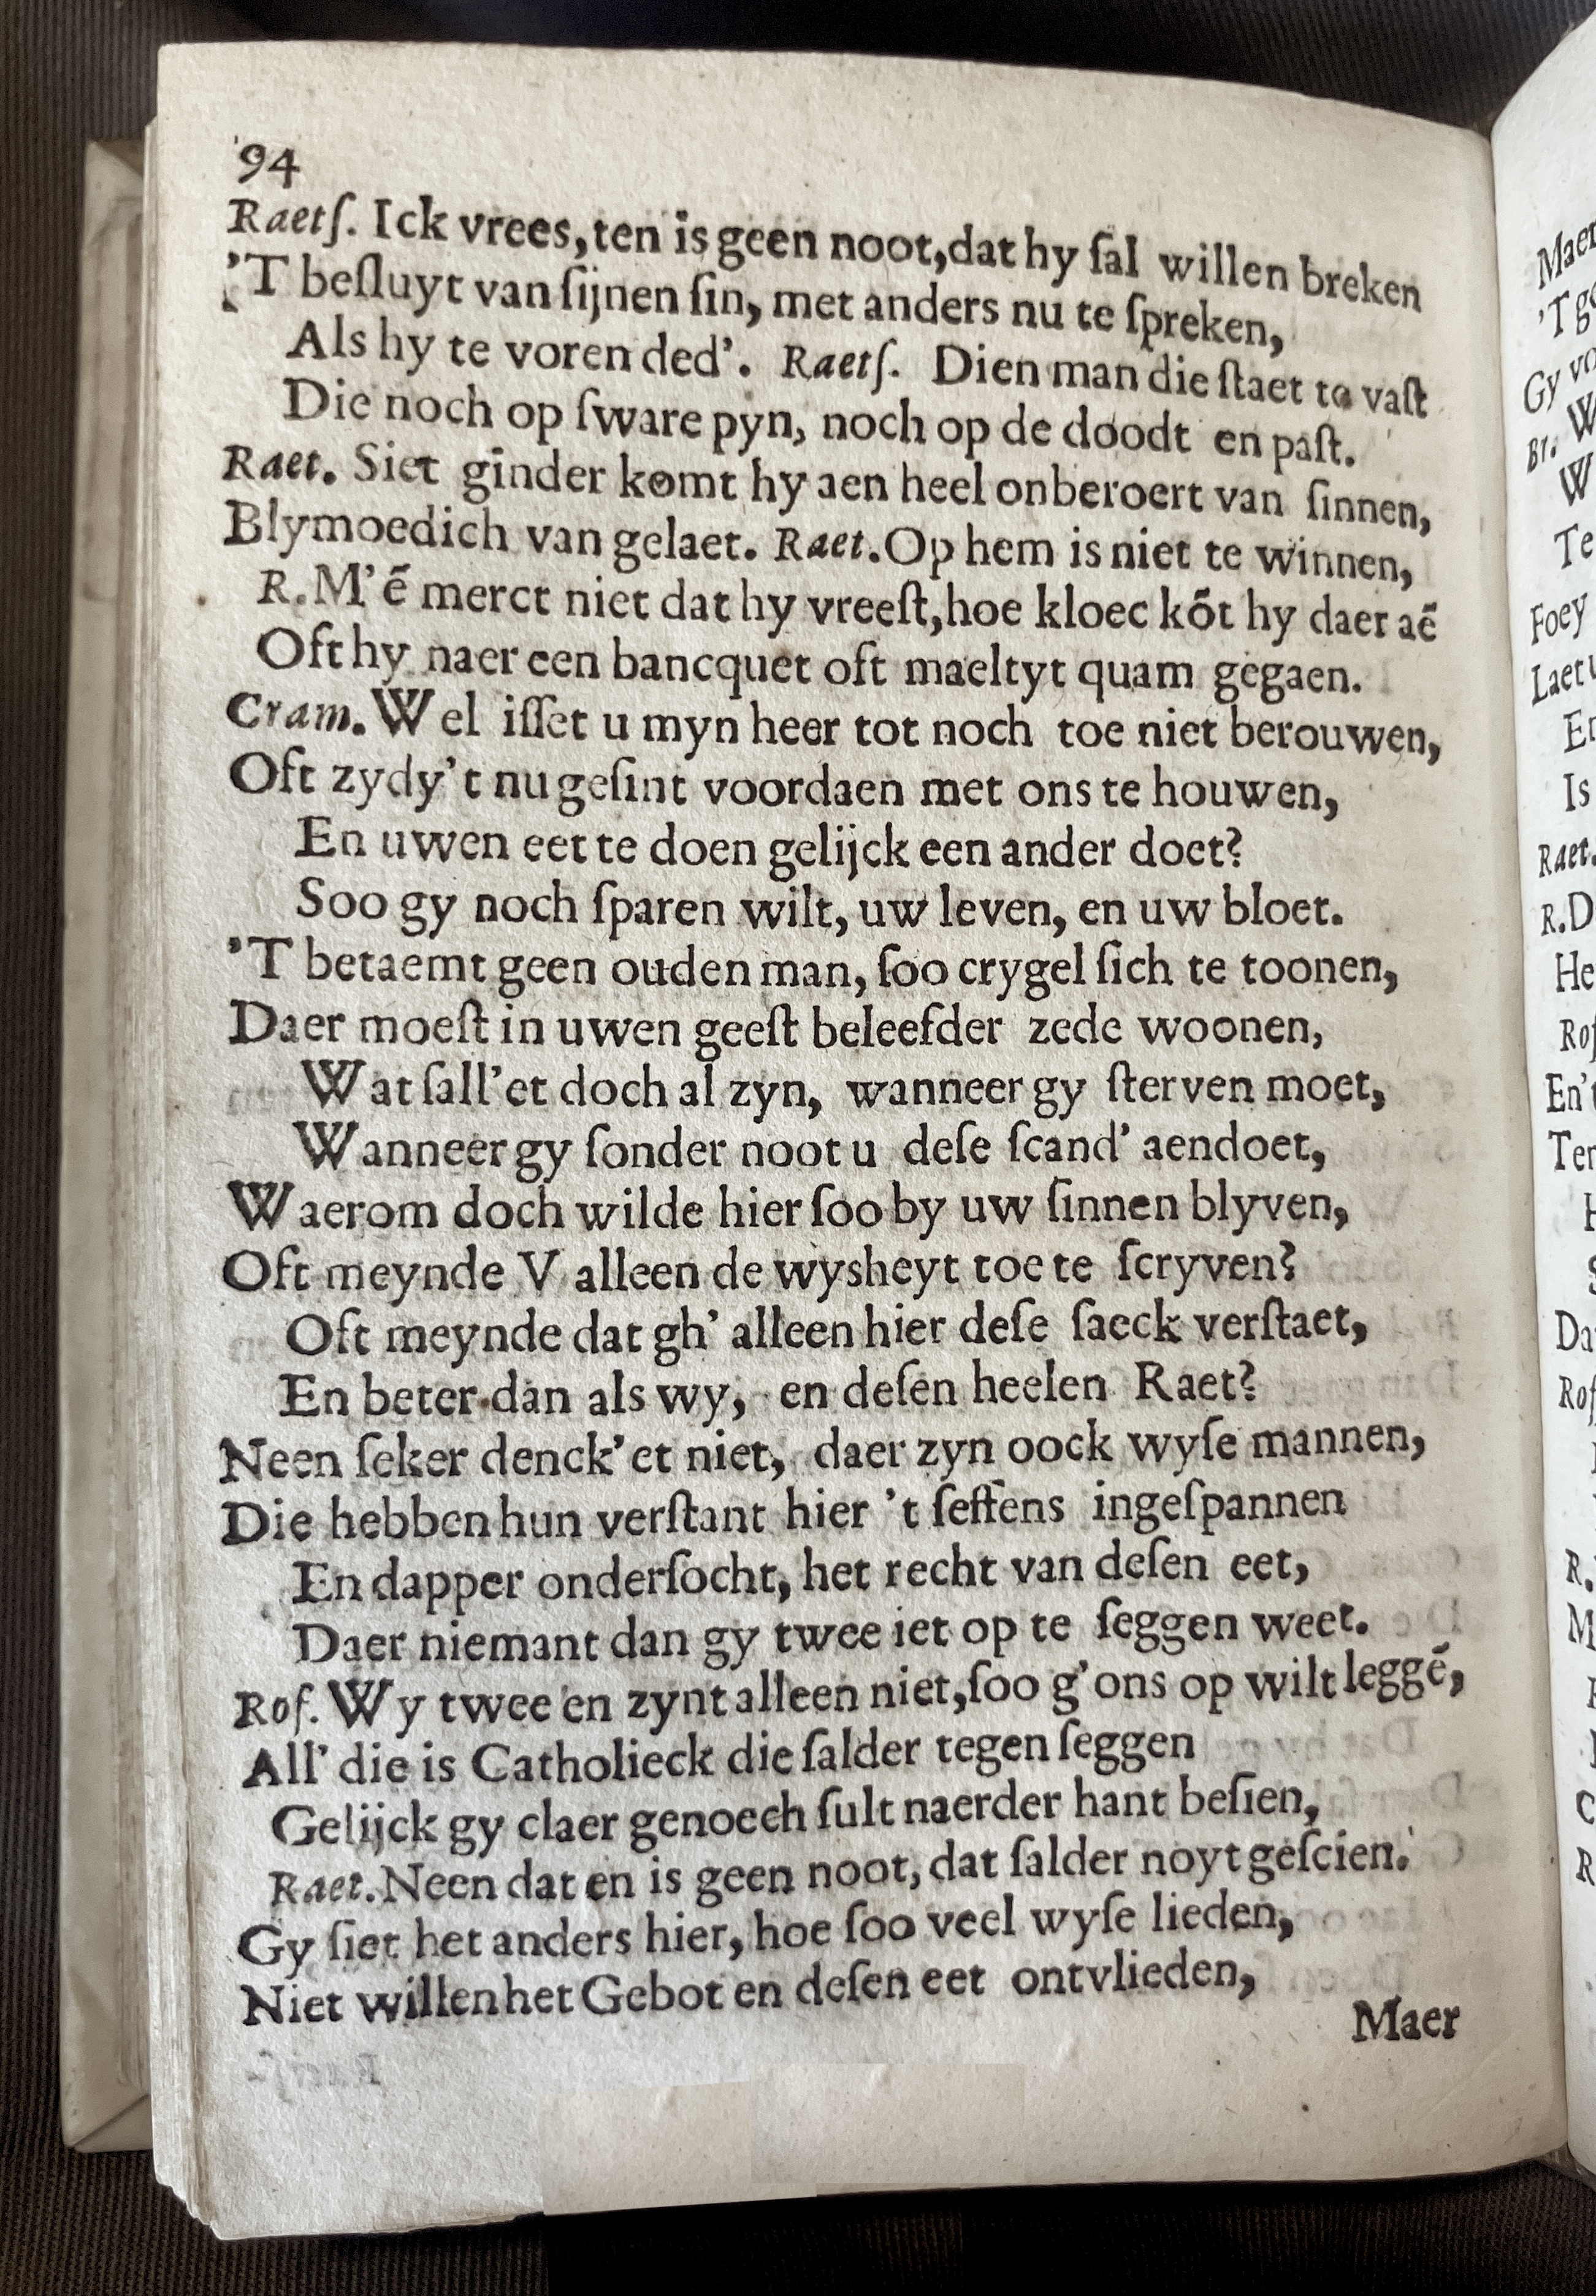 94
Raetſ. Ick vrees, ten is geen noot, dat hy ſal willen breken
'T beſluyt van ſijnen ſin, met anders nu te ſpreken,
Als hy te voren ded'. Raetſ. Dien man die ſtaet te vaſt
Die noch op ſware pyn, noch op de doodt en paſt.
Raet. Siet ginder komt hy aen heel onberoert van ſinnen,
Blymoedich van gelaet. Raet. Op hem is niet te winnen,
R. M'ē merct niet dat hy vreeſt, hoe kloec kōt hy daer aē
Oft hy naer een bancquet oft maeltyt quam gegaen.
Cram. Wel iſſet u myn heer tot noch toe niet berouwen,
Oft zydy't nu geſint voordaen met ons te houwen,
En uwen eet te doen gelijck een ander doet?
Soo gy noch ſparen wilt, uw leven, en uw bloet.
'T betaemt geen ouden man, ſoo crygel ſich te toonen,
Daer moeſt in uwen geeſt beleefder zede woonen,
Wat ſall'et doch al zyn, wanneer gy ſterven moet,
Wanneer gy ſonder noot u deſe ſcand' aendoet,
Waerom doch wilde hier ſoo by uw ſinnen blyven,
Oft meynde V alleen de wysheyt toe te ſcryven?
Oft meynde dat gh' alleen hier deſe ſaeck verſtaet,
En beter dan als wy, en deſen heelen Raet?
Neen ſeker denck'et niet, daer zyn oock wyſe mannen,
Die hebben hun verſtant hier 't ſeffens ingeſpannen
En dapper onderſocht, het recht van deſen eet,
Daer niemant dan gy twee iet op te ſeggen weet.
Roſ. Wy twee en zynt alleen niet, ſoo g'ons op wilt leggē,
All' die is Catholieck die ſalder tegen ſeggen
Gelijck gy claer genoech ſult naerder hant beſien,
Raet. Neen dat en is geen noot, dat ſalder noyt geſcien.
Gy ſiet het anders hier, hoe ſoo veel wyſe lieden,
Niet willen het Gebot en deſen eet ontvlieden,
Maer